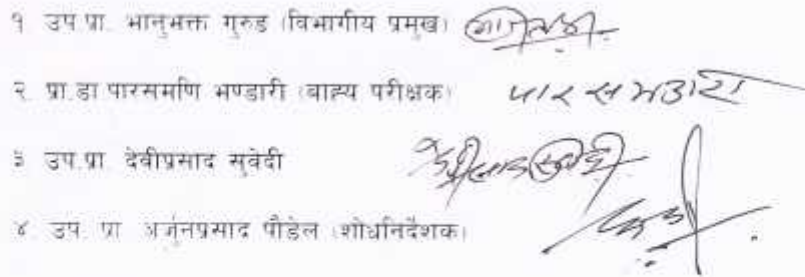 १ उप.प्रा. भानुभक्त गुरुङ (विभागीय प्रमुख)
२ प्रा.डा पारसमणि भण्डारी (बाह्य परीक्षक)
३ उप.प्रा. देवीप्रसाद सुवेदी
४ उप. प्रा अर्जुनप्रसाद पौडेल (शोधनिर्देशक)